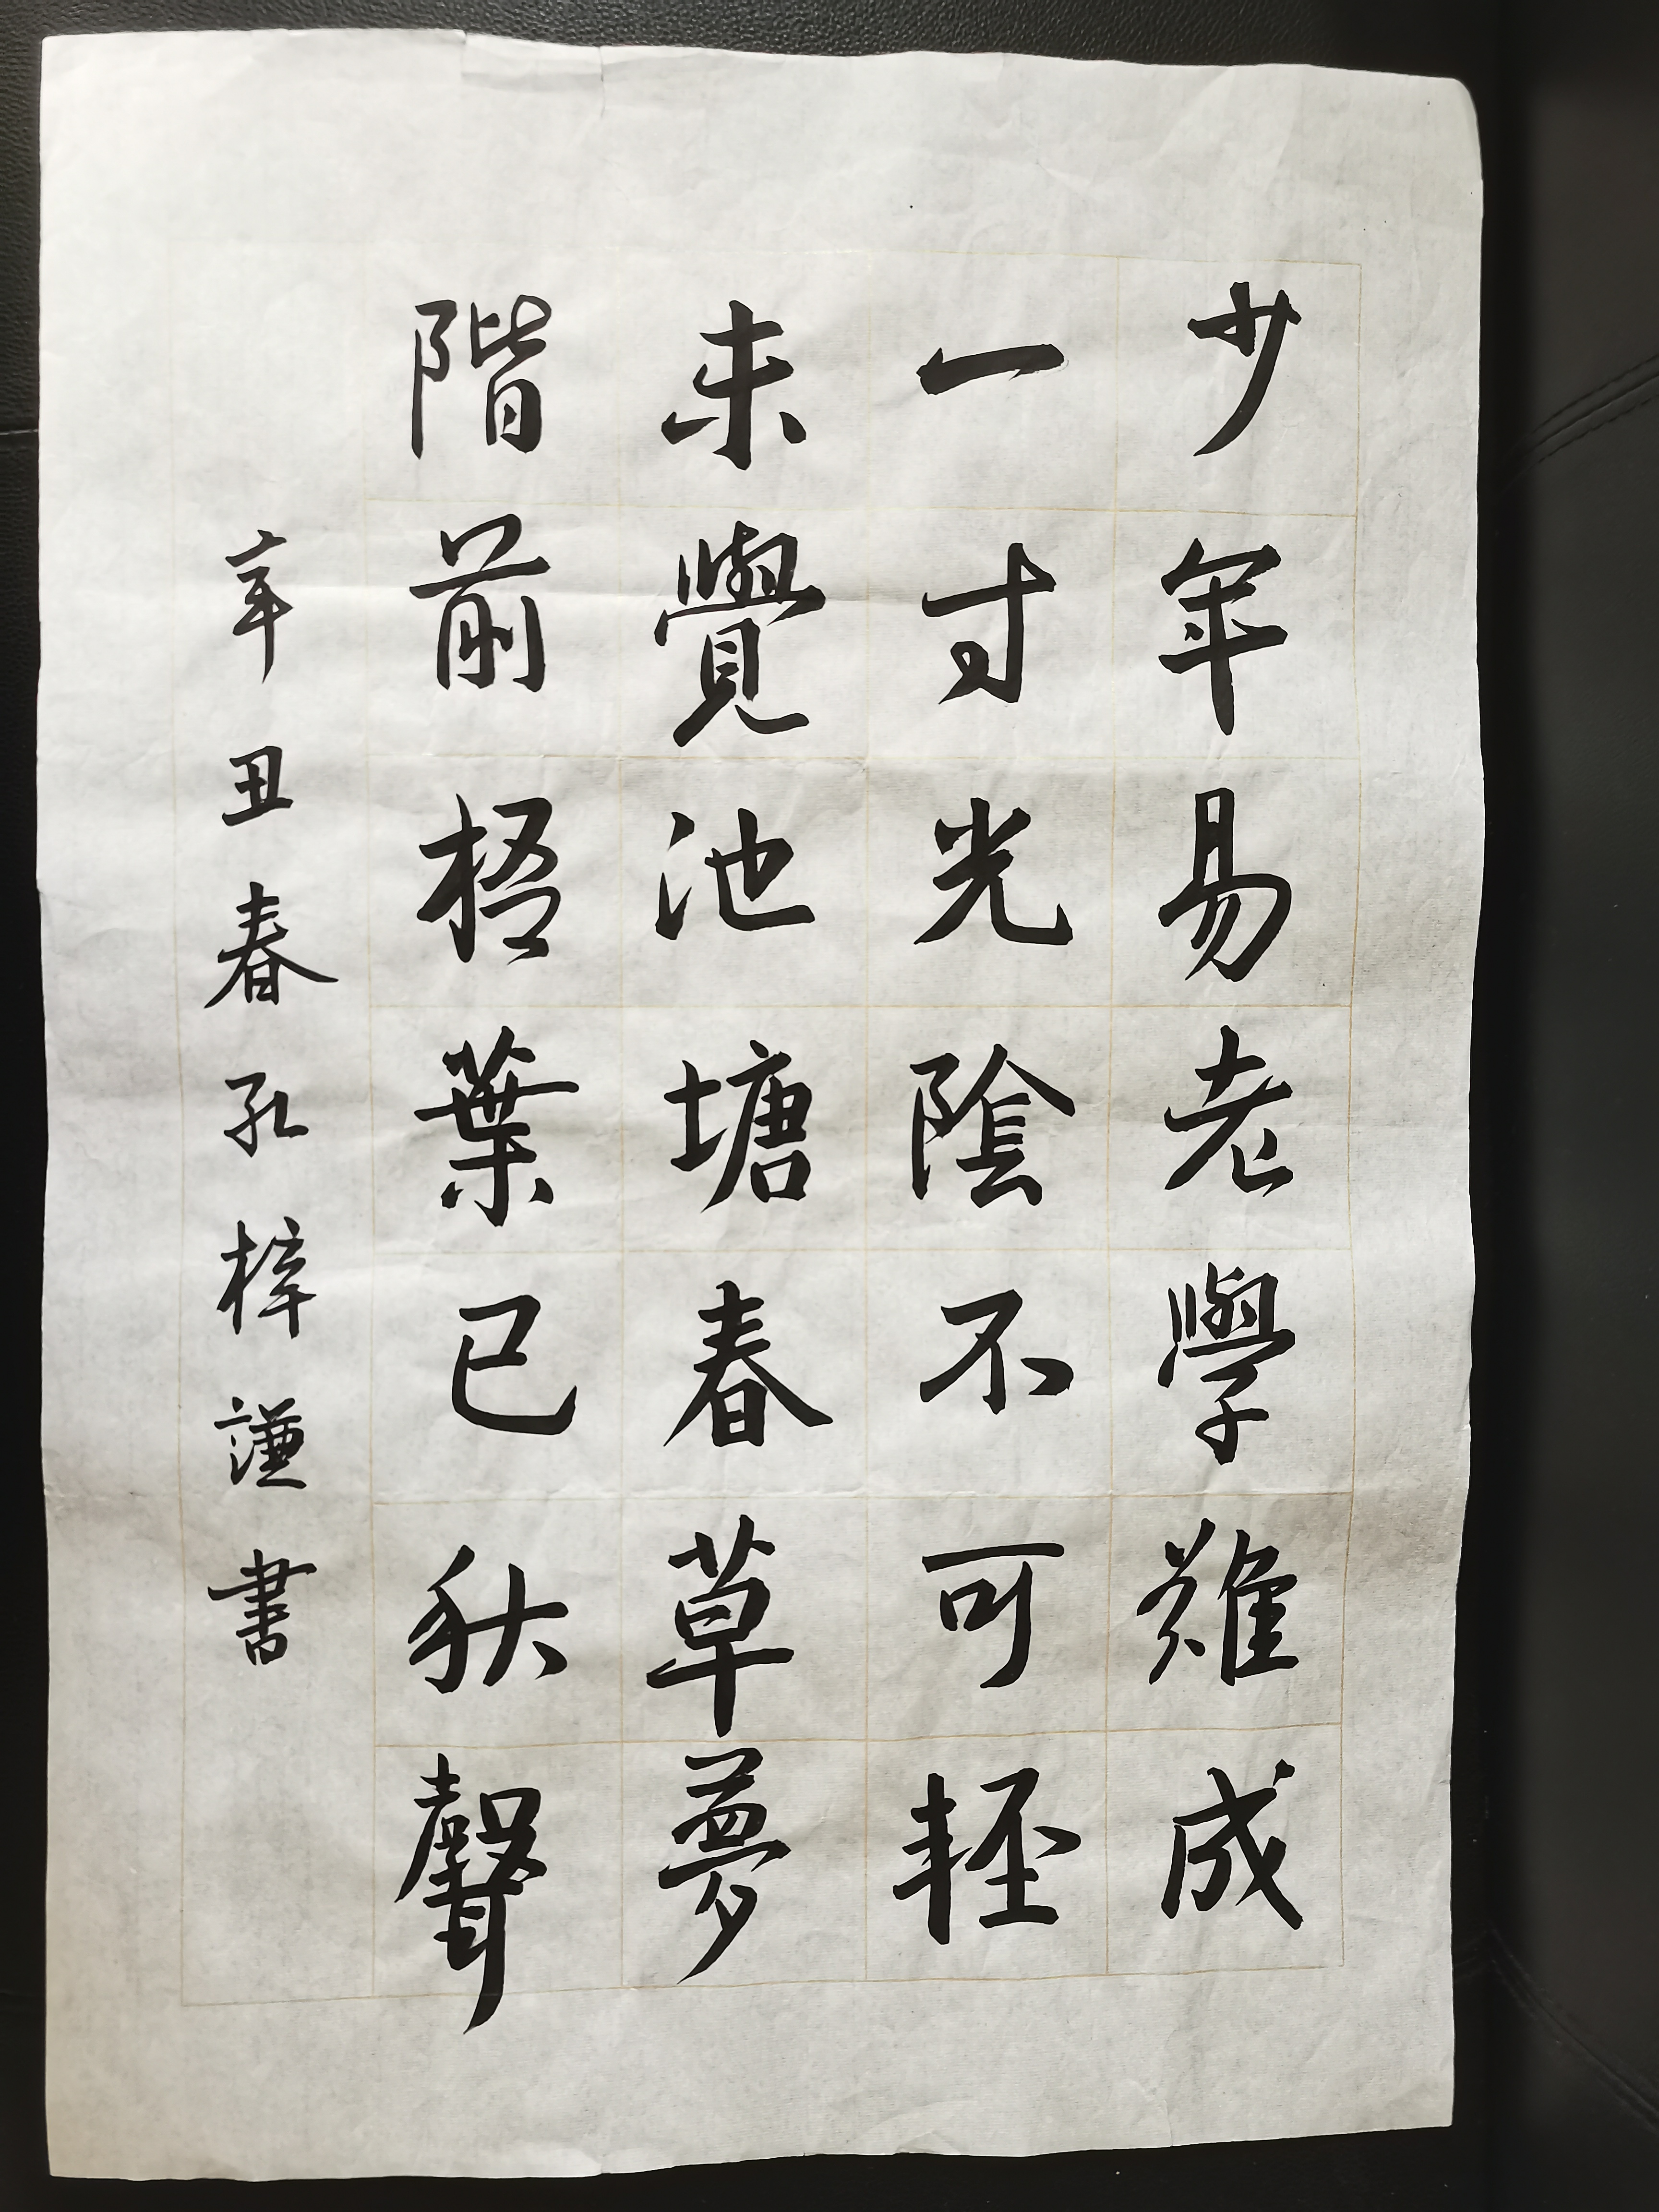 少年易老學難成
一寸光陰不可輕
未覺池塘春草夢
階前梧葉已秋聲
辛丑春孔梓謹書